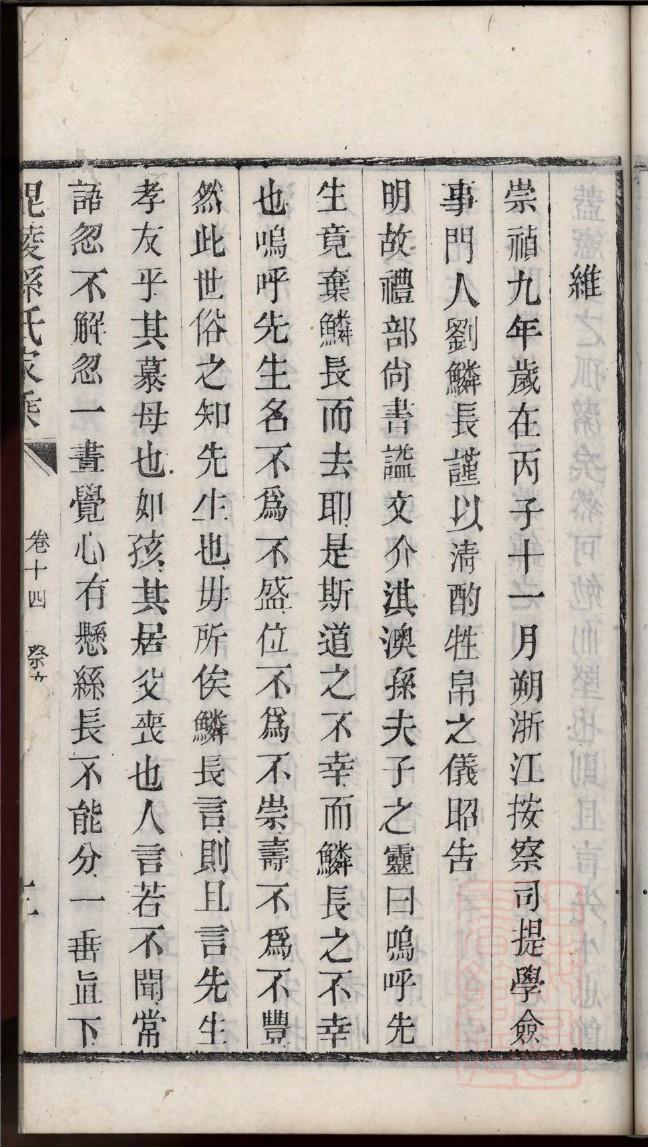 維
崇禎九年歲在丙子十一月朔浙江按察司提學僉
事門人劉鱗長謹以清酌牲帛之儀昭告
明故禮部尚書謚文介淇澳孫夫子之靈曰嗚呼先
生竟棄鱗長而去耶是斯道之不幸而鱗長之不幸
也嗚呼先生名不爲不盛位不爲不崇壽不爲不豐
然此世俗之知先生也毋所俟鱗長言則且言先生
孝友乎其慕母也如孩其居父喪也人言若不聞常
語忽不解忽一晝覺心有懸絲長不能分一垂直下
毘陵孫氏家乘
卷十四 祭文